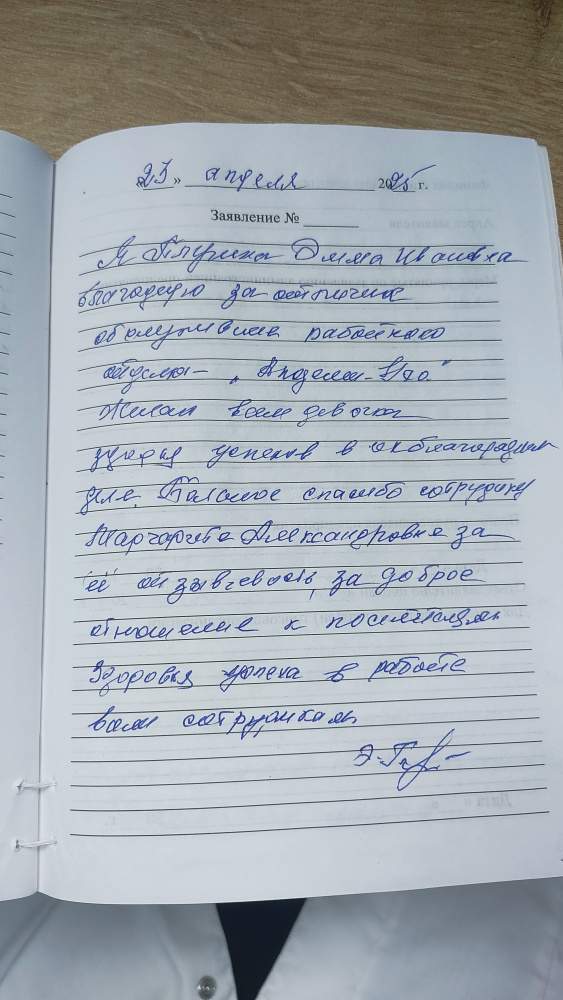 «23» апреля 2025 г.
Заявление №
Я Эмма Ивановна
благодарю за отличное
обслуживание
Желаю всем девочкам
успехов в их благородном
деле. Большое спасибо сотруднику
Маргарите Александровне за
её отзывчивость, за доброе
отношение к посетителям
Здоровья успеха в работе
всем сотрудникам